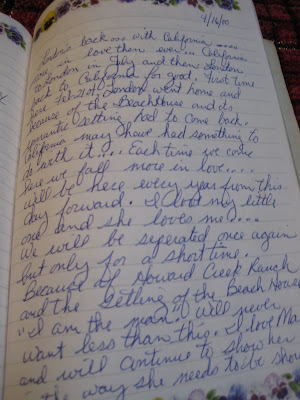 4/16/00
London's back... with California.....
more in love them ever... California
to London in July and then London
back to California for good. First time
here Feb 21st London went home and
because of the Beachhouse and its
romantic setting had to come back.
California may have had something to
do with it.... Each time we come
here we fall more in love....
will be here every year from this
day forward. I love my little
one and she loves me....
We will be seperated once again
but only for a short time.
Because of Howard Creek Ranch
and the Setting of the Beach House
"I am the man" & will never
want less than this. I love Ma
and will continue to show her
the way she needs to be show